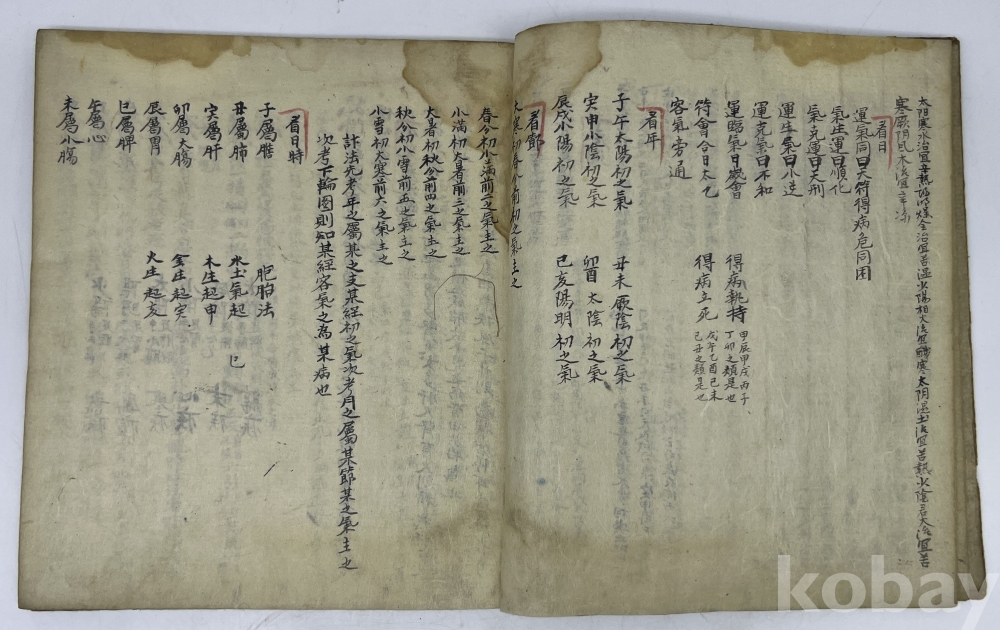 太阳寒水治宜辛熱阳明燥金治宜苦温少陽相火治宜醎寒太阴湿土治宜苦熱少陰君火治宜苦
寒厥阴風木治宜辛凉
看日
運氣同曰天符得病危同困
氣生運曰順化
氣克運曰天刑
運生氣曰小逆
運克氣曰不和
運臨氣曰歲會 得病執持 甲辰甲戌丙子丁卯之類是也
符會合曰太乙 得病立死 戊午乙酉己未己丑之類是也
客氣旁通
看年
子午太陽初之氣 丑未厥陰初之氣
寅申小陰初之氣 卯酉太陰初之氣
辰戌小陽初之氣 巳亥陽明初之氣
看節
大寒初春分前初之氣主之
春分初小滿前二之氣主之
小滿初大暑前三之氣主之
大暑初秋分前四之氣主之
秋分初小雪前五之氣主之
小雪初大寒前六之氣主之
訣法先考年之屬某之支某經初之氣次考月之屬某節某之氣主之
次考下輪圖則知某經客氣之為某病也
看日時
子屬膽 胞胎法
丑屬肺 水土氣起 巳
寅屬肝 木生起申
卯屬大腸 金生起寅
辰屬胃 火生起亥
巳屬脾
午屬心
未屬小腸
kobay